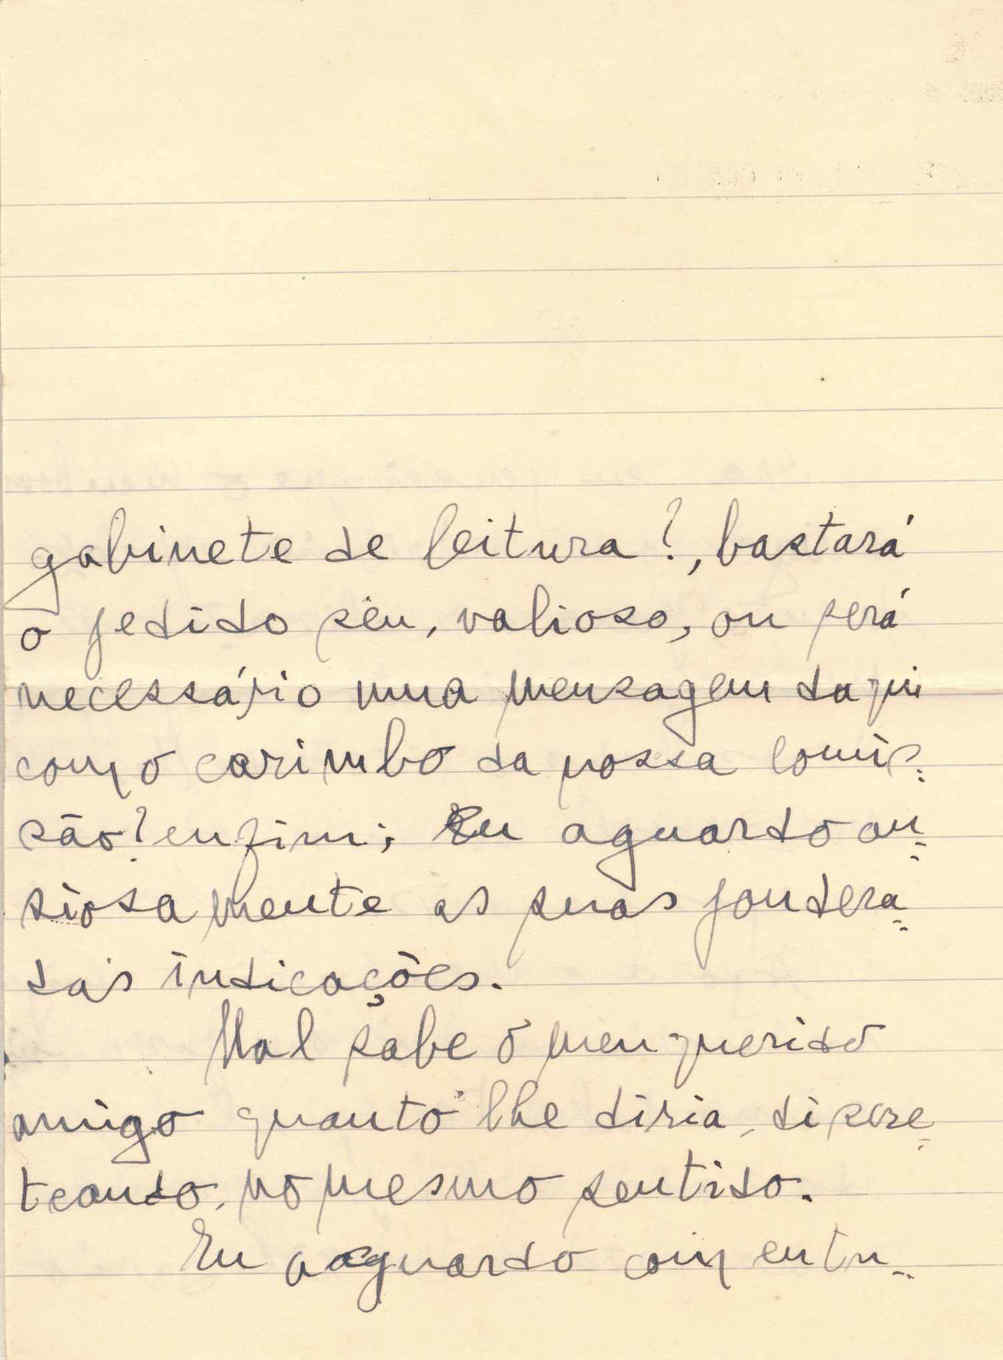 gabinete de leitura?, bastará
o pedido seu, valioso, ou será
necessário uma mensagem daqui
com o carimbo da nossa comis-
são? enfim; Eu aguardo an-
siosamente as suas pondera-
das indicações.
Mal sabe o meu querido
amigo quanto lhe diria, discre-
teando, no mesmo sentido.
Eu aguardo com entu-